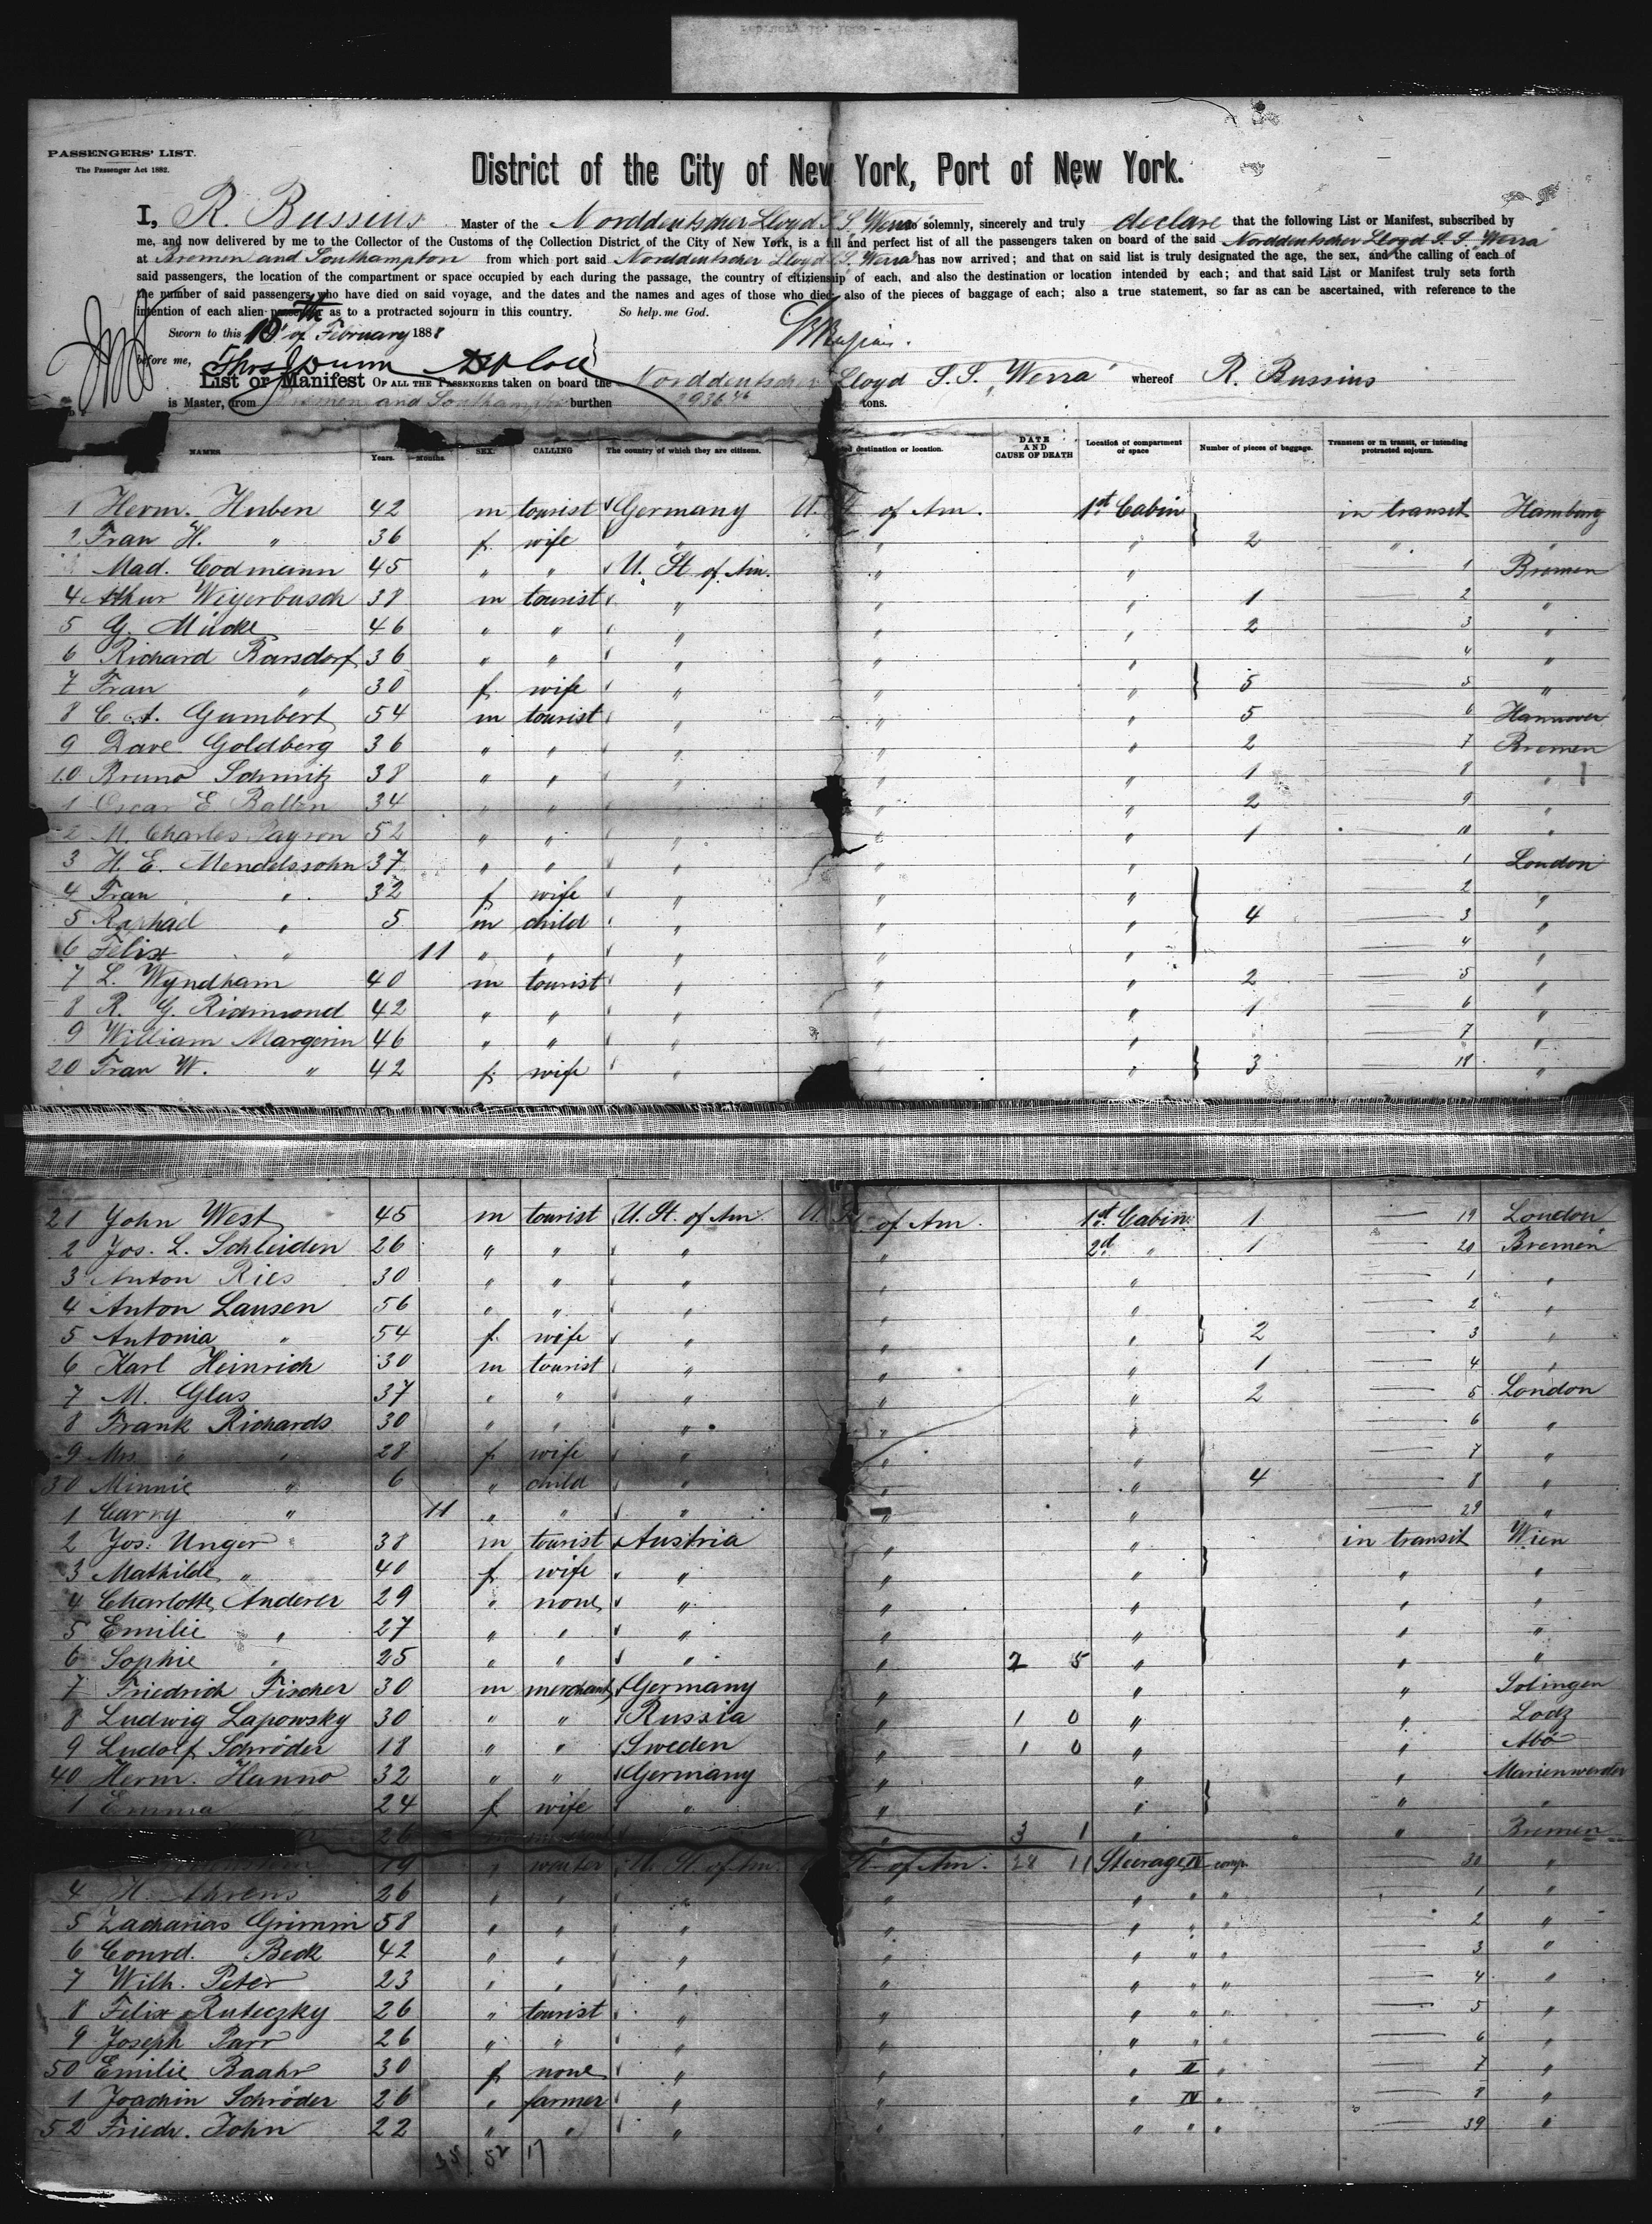 PASSENGERS' LIST.
The Passenger Act 1882.
District of the City of New York, Port of New York.
I, R. Bussius Master of the Norddeutscher Lloyd S. S. "Werra" do solemnly, sincerely and truly declare that the following List or Manifest, subscribed by
me, and now delivered by me to the Collector of the Customs of the Collection District of the City of New York, is a full and perfect list of all the passengers taken on board of the said Norddeutscher Lloyd S. S. "Werra"
at Bremen and Southampton from which port said Norddeutscher Lloyd S. S. "Werra" has now arrived; and that on said list is truly designated the age, the sex, and the calling of each of
said passengers, the location of the compartment or space occupied by each during the passage, the country of citizenship of each, and also the destination or location intended by each; and that said List or Manifest truly sets forth
the number of said passengers who have died on said voyage, and the dates and the names and ages of those who died; also of the pieces of baggage of each; also a true statement, so far as can be ascertained, with reference to the
intention of each alien passenger as to a protracted sojourn in this country. So help me God.
Sworn to this 10th of February 1888
before me, Thos J Dunn
List or Manifest OF ALL THE PASSENGERS taken on board the Norddeutscher Lloyd S. S. "Werra" whereof R. Bussius
is Master, from Bremen and Southampton burthen 2936 46 tons.
NAMES Years. Months. SEX. CALLING The country of which they are citizens. destination or location. DATE AND CAUSE OF DEATH Location of compartment or space Number of pieces of baggage. Transient or in transit, or intending protracted sojourn.
1 Herm. Huben 42 m tourist Germany U. St. of Am. 1st Cabin in transit Hamburg
2 Frau H. " 36 f. wife " " " 2 " "
Mad. Codmann 45 " " U. St. of Am. " " 1 Bremen
4 Arthur Weyerbusch 38 m tourist " " " 1 2 "
5 G. Mücke 46 " " " " " 2 3 "
6 Richard Barsdorf 36 " " " " " 4 "
7 Frau " 30 f. wife " " " 5 5 "
8 C. A. Gumbert 54 m tourist " " " 5 6 Hannover
9 Dave Goldberg 36 " " " " " 2 7 Bremen
10 Bruno Schmitz 38 " " " " " 1 8 "
1 Oscar E. Ballin 34 " " " " " 2 9 "
2 M. Charles Payson 52 " " " " " 1 10 "
3 H. E. Mendelssohn 37 " " " " " 1 London
4 Frau " 32 f wife " " " 2 "
5 Raphael " 5 m child " " " 4 3 "
6 Felix " 11 " " " " " 4 "
7 L. Wyndham 40 m tourist " " " 2 5 "
8 R. G. Ridmond 42 " " " " " 1 6 "
9 William Margerin 46 " " " " " 7 "
20 Frau W. " 42 f. wife " " " 3 18 "
21 John West 45 m tourist U. St. of Am. U. St. of Am. 1st Cabin 1 19 London
2 Jos. L. Schleiden 26 " " " " 2d " 1 20 Bremen
3 Anton Ries 30 " " " " " 1 "
4 Anton Lausen 56 " " " " " 2 "
5 Antonia " 54 f. wife " " " 2 3 "
6 Karl Heinrich 30 m tourist " " " 1 4 "
7 M. Glas 37 " " " " " 2 5 London
8 Frank Richards 30 " " " " " 6 "
9 Mrs. " " 28 f wife " " " 7 "
30 Minnie " 6 " child " " " 4 8 "
1 Carry " 11 " " " " " 29 "
2 Jos. Unger 38 m tourist Austria " " in transit Wien
3 Mathilde " 40 f wife " " " " "
4 Charlotte Anderer 29 " none " " " " "
5 Emilie " 27 " " " " " " "
6 Sophie " 25 " " " " 2 5 " " "
7 Friedrich Fischer 30 m merchant Germany " " " Solingen
8 Ludwig Lapowsky 30 " " Russia " 1 0 " " Lodz
9 Ludolf Schröder 18 " " Sweden " 1 0 " " Abö
40 Herm. Hanno 32 " " Germany " " " Marienwerder
1 Emma " 24 f wife " " " " "
26 " 3 1 " " Bremen
19 " waiter U. St. of Am. St. of Am. 28 11 Steerage IV comp. 30 "
4 H. Ahrens 26 " " " " " " " 1 "
5 Zacharias Grimm 58 " " " " " " " 2 "
6 Conrd. Beck 42 " " " " " " " 3 "
7 Wilh. Peter 23 " " " " " " " 4 "
8 Felix Ruteczky 26 " tourist " " " " " 5 "
9 Joseph Parr 26 " " " " " " " 6 "
50 Emilie Baahr 30 f none " " " II " 7 "
1 Joachin Schröder 26 " farmer " " " IV " 8 "
52 Friedr. John 22 " " " " " " " 39 "
35 52 17